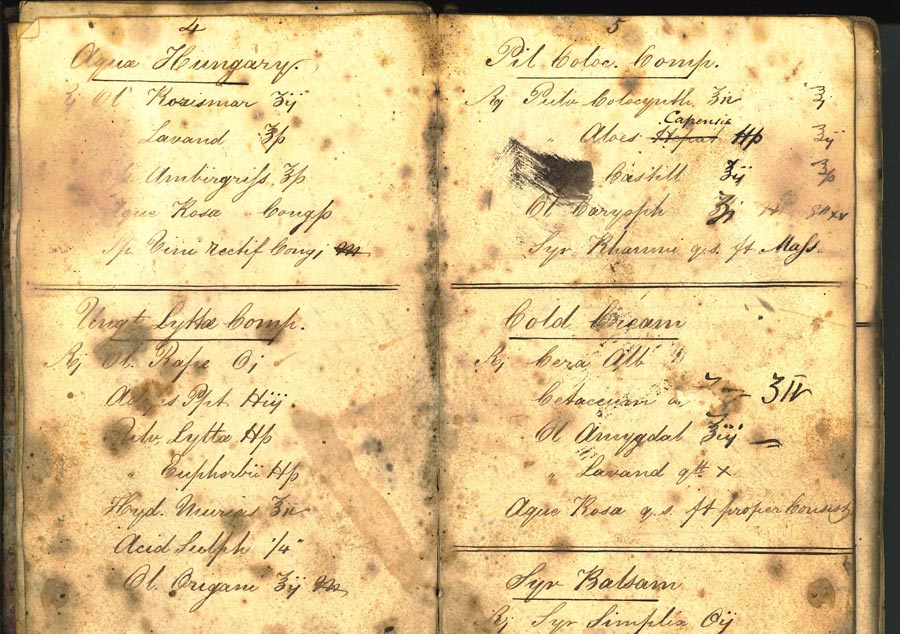 4
Aqua Hungary.
Rj Ol Rozismar ʒij
Lavand ʒp
Ambergriss ʒp
Aque Rosa Congp
Sp. Vini rectif Congj M
Ungt Lytta Comp.
Rj Ol. Rape Oj
Adeps Ppt ℔iij.
Pulv. Lytta ℔p
" Euphorbii ℔p
Hyd. Murias
Acid Sulph 1/4"
Ol. Origani ʒij M
5
Pil Coloc. Comp.
Rj Pulv Colocynth
Capensis
" Aloes Hepat ℔p ʒij
Castill ʒij ʒp
Ol Caryoph grxv
Syr Rhamni q.s. ft Mass.
Cold Cream
Rj Cera Alb
Cetaceum a ʒIV
Ol Amygdal ʒiij
" Lavand gtt x
Aque Rosa q.s. ft proper Consist
Syr Balsam
Rj Syr Simplix Oij